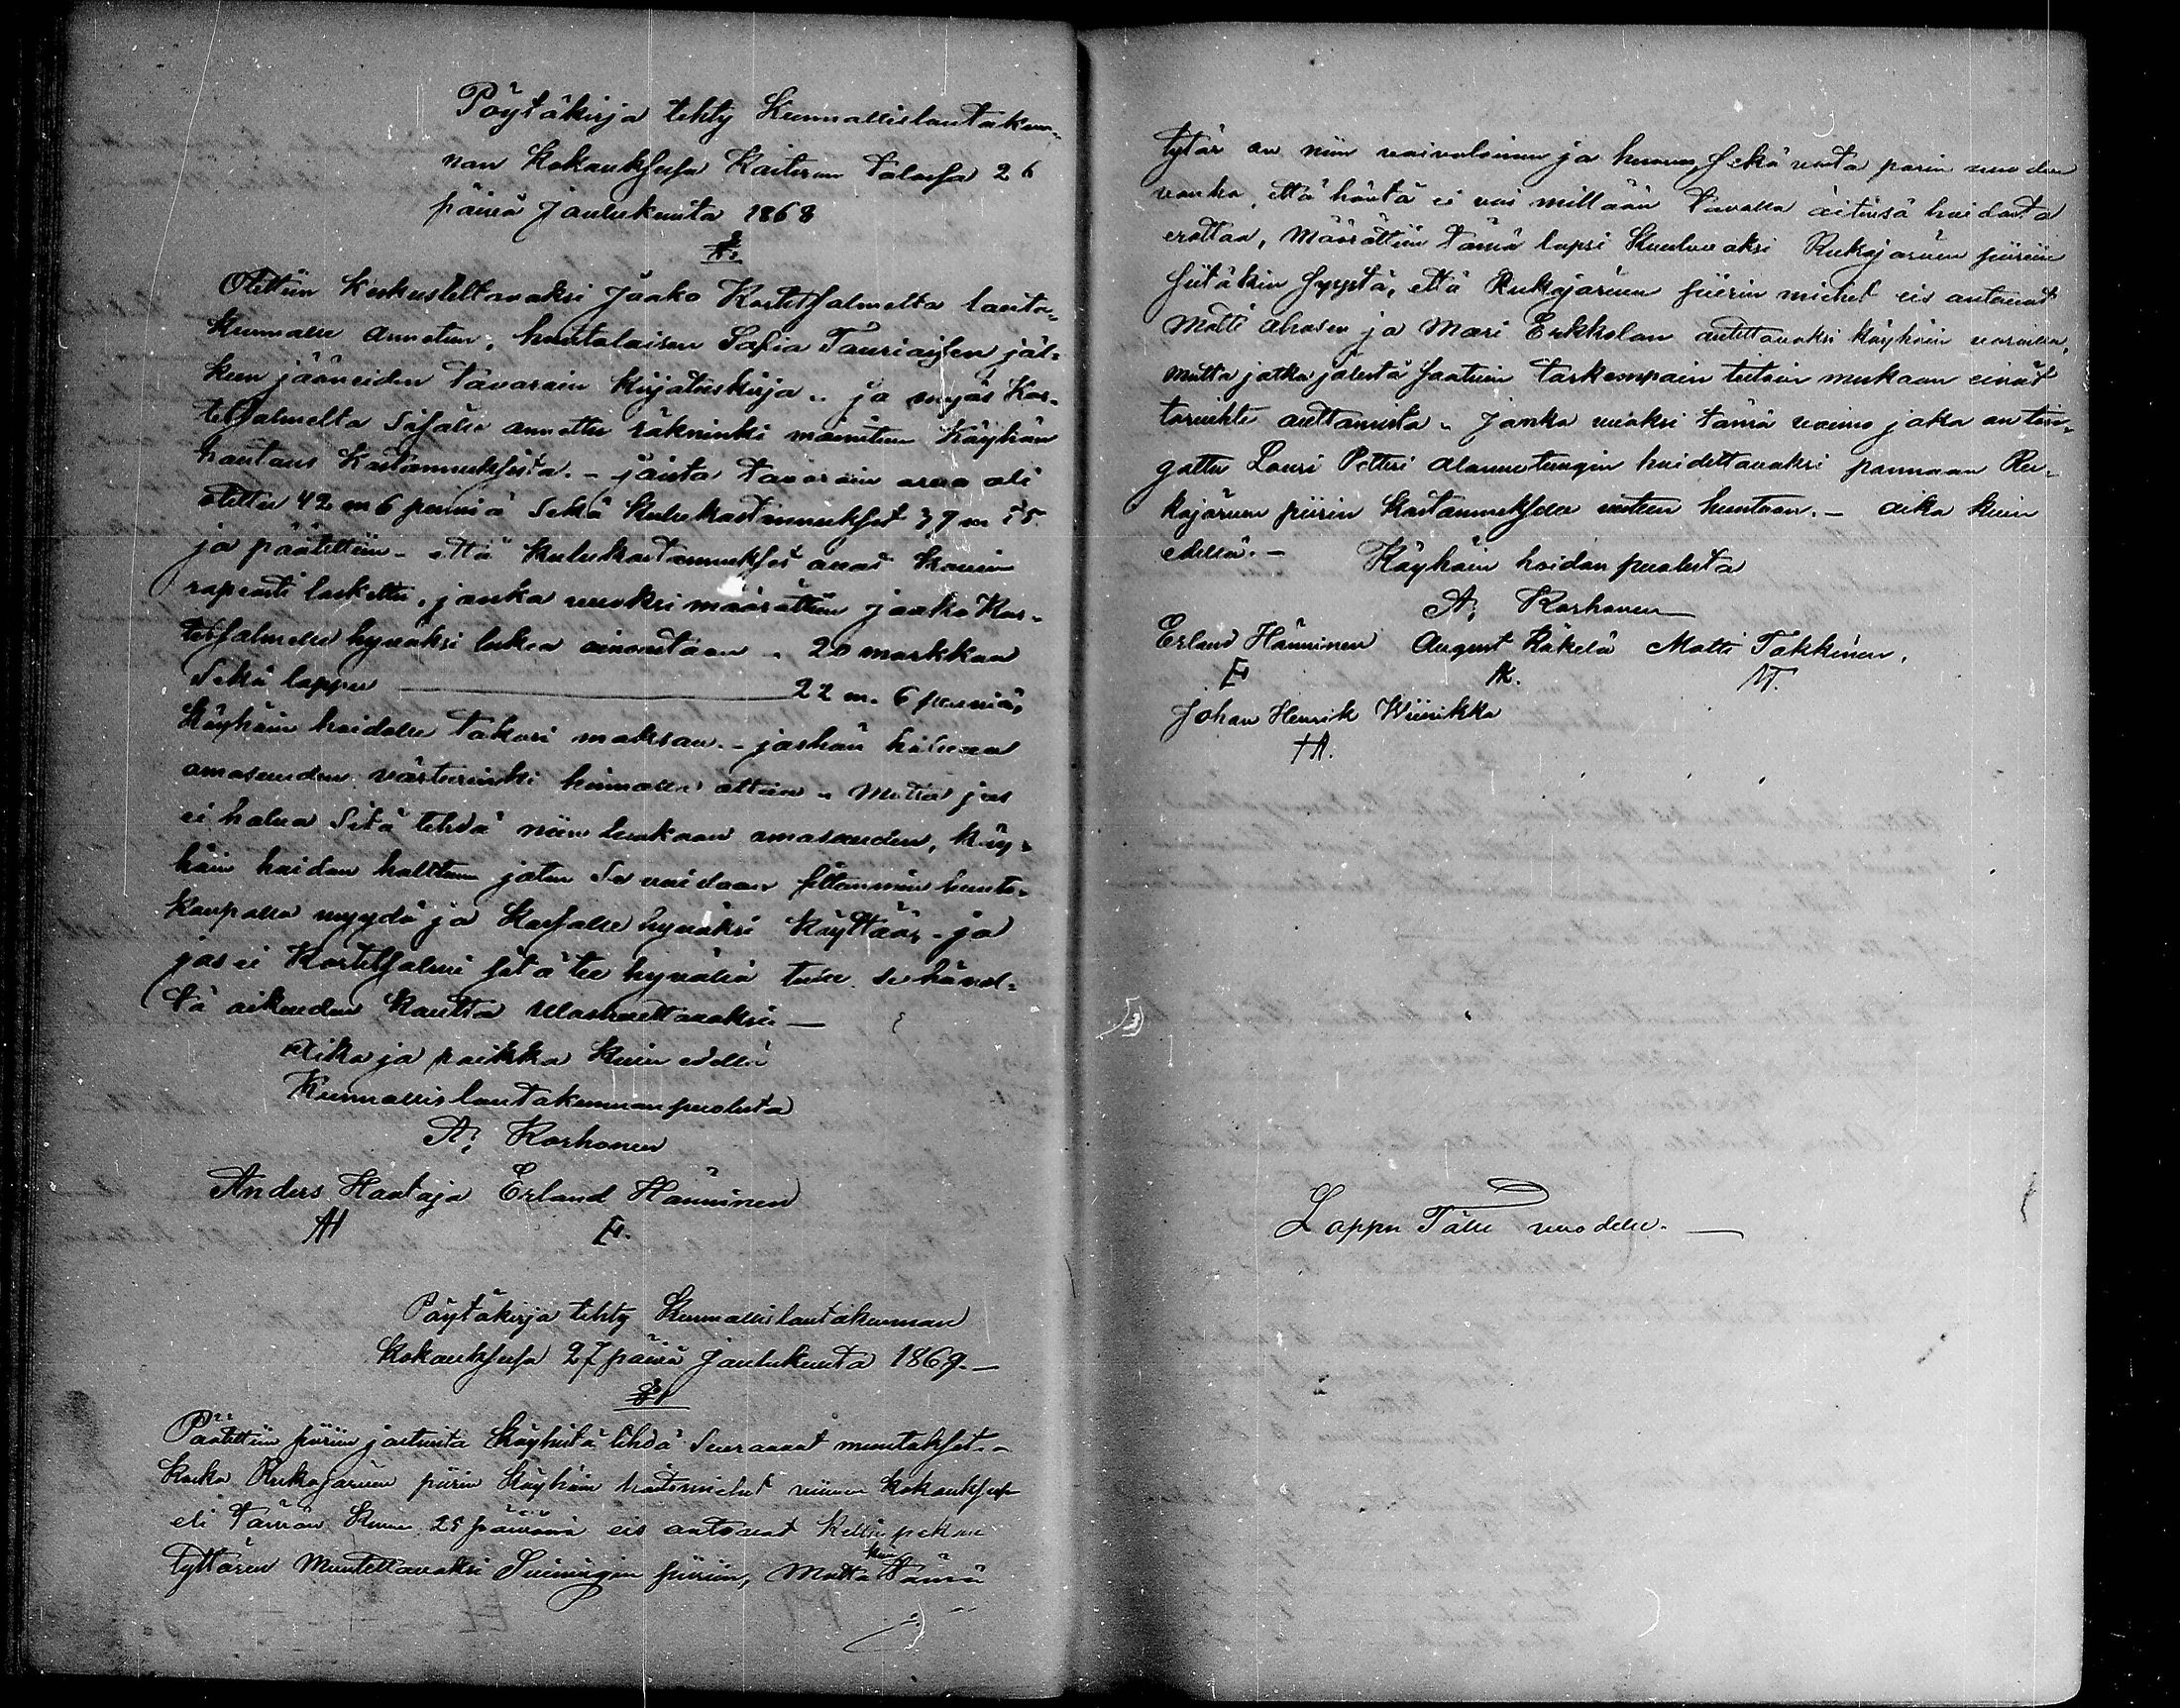 Pöytäkirja tehty Kunnallislautakun-
nan Kokouksessa Karterun Talossa 26
päivä Jouluukuuta 1868
§ 1.
Otettiin Keskusteltavaksi Jaako Kortetsalmelta lauta-
kunnalle annetun, huutolaisen Safia Tauriaisen jäl-
keen jääneiden Tavarain Kirjatuskirja.. ja myös Kor-
tetsalmelta Sisälle annettu räkninki mainitun Käyhän
hautaus Kustannuksista. - jäista Tavarain arvo oli
otettu 42 m 6 penniä Sekä Kulukustannukset 39 m 75
ja päätettiin - että Kulukustannukset ovat kovin
rapeasti laskettu, jonka vuoksi määrättiin Jaako Kor-
tetsalmelle hyväksi lukea ainoastaan - 20 markkaa
Sekä loppu 22 m. 6 penniä,
Käyhäin hoidolle Takasi maksaa. - jos hän haluaa
omaisuuden värteerinki hinnalle ottaa - Mutta jos
ei halua Sitä tehdä niin luokaan omaisuuden, Käy-
häin hoidon halttuun joten Se voidaan sittemmin huuto-
kaupalla myydä ja Kassalle hyväksi Käyttää, - ja
jos ei Kortetsalmi sitä tee hyvällä tulee se hänel-
tä oikeuden Kautta Uloshaettavaksi —
Aika ja paikka Kuin edellä
Kunnallislautakunnan puolesta
A; Korhonen
Anders Haataja Erland Hänninen
AH E.
Pöytäkirja tehty Kunnallislautakunnan
Kokouksessa 27 päivä Jouluukuuta 1869. —
§ 1
Päätettiin piiriin jaetuista Käyhistä tehdä Seuraavat muutokset. -
Koska Rukajärven piirin Käyhäin hoitomiehet viime Kokouksessa
eli Tämän Kuun 25 päivänä eis antoneet
Tyttären Muutettavaksi Suiningin piiriin, Mutta kun Tämä
tytär on niin vaivaloinen ja huono, Sekä vasta parin vuoden
vanha, että häntä ei voi millään Tavalla äitinsä hoidosta
erottaa, Määrättiin Tämä lapsi Kuuluvaksi Rukajärven piiriin
Siitäkin syystä, että Rukajärven piirin miehet eis antaneet
Matti Ahosen ja Mari Erkkolan autettavaksi Käyhäin varoilla,
mutta jotka jäistä saatuin Tarkempain tietoin mukaan eivät
tarvihte auttamista. Jonka vuoksi Tämä vaimo joka on tän-
gattu Louri Petteri Alanneteugin hoidettavaksi pannaan Ru-
kajärven piirin Kustannukselle entiseen huutoon. - Aika Kuin
edellä. — Käyhäin hoidon puolesta
A; Korhonen
Erland Hänninen August Käkelä Matti Takkinen.
E AK. MT.
Johan Henrik Wiinikka
HA.
Loppu Tälle vuodelle. —